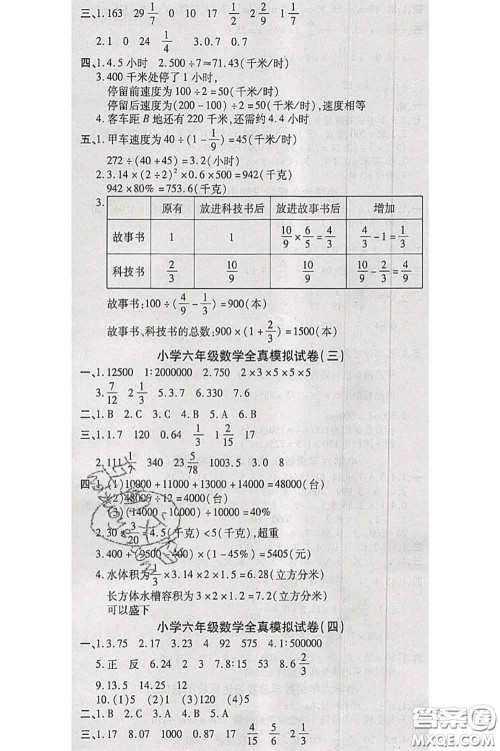 三、1. 163 29 1/7 1 0 17 1/2 2 1/7 8
2. 1 0 24 1/4 3. 0.7 0.7
四、1. 4.5 小时 2. 500÷7≈71.43(千米/时)
3. 400 千米处停了 1 小时,
停留前速度为 100÷2=50(千米/时)
停留后速度为(200-100)÷2=50(千米/时),速度相等
4. 客车距 B 地还有 220 千米,还需约 4.4 小时
五、1. 甲车速度为 40÷(1-1/9)=45(千米/时)
272÷(40+45)=3.2(小时)
2. 3.14×(2÷2)²×0.6×500=942(千克)
942×80%=753.6(千克)
3.
原有 放进科技书后 放进故事书后 增加
故事书 1 1 10/9×6/5=4/3 4/3-1=1/3
科技书 2/3 10/9 10/9 10/9-2/3=4/9
故事书:100÷(4/9-1/3)=900(本)
故事书、科技书的总数:900×(1+2/3)=1500(本)
小学六年级数学全真模拟试卷(三)
一、1. 12500 1∶2000000 2. 750 2×3×5×5×5
3. 7/12 2 1/3 5. 3 6. 330 7. 6
二、1. B 2. C 3. B 4. C 5. A 6. B
三、1. 1.7 120 0.64 1/3 1 2/15 17
2. 111 1/7 340 23 5/78 1003.5 3. 0 8
四、1. (1)10800+11000+13000+14000=48000(台)
(2)48000÷12=4000(台)
(3)(14000-10000)÷10000=40%
2. 30×3/20=4.5(千克)<5(千克),超重
3. 400+(9500-400)×(1-45%)=5405(元)
4. 水体积为1/3×3.14×2×1=6.28(立方分米)
长方体水槽容积为 3×2×1.2=7.2(立方分米)
可以盛下
小学六年级数学全真模拟试卷(四)
一、1. 3.75 2. 17 3. 23 4 92 575 4. 1∶500000
5. 正 反 6. 2 3 4 7. 8∶15 53 8. 6 2/3
9. 13.5 14. 25 12
10. (1)5 (2)1 (3)120 (4)5
二、1. B 2. C 3. B 4. A 5. A
三、1. 17 8.07 1000 0.87 17 4/15 5/6 2
答案圈
MXQE.COM